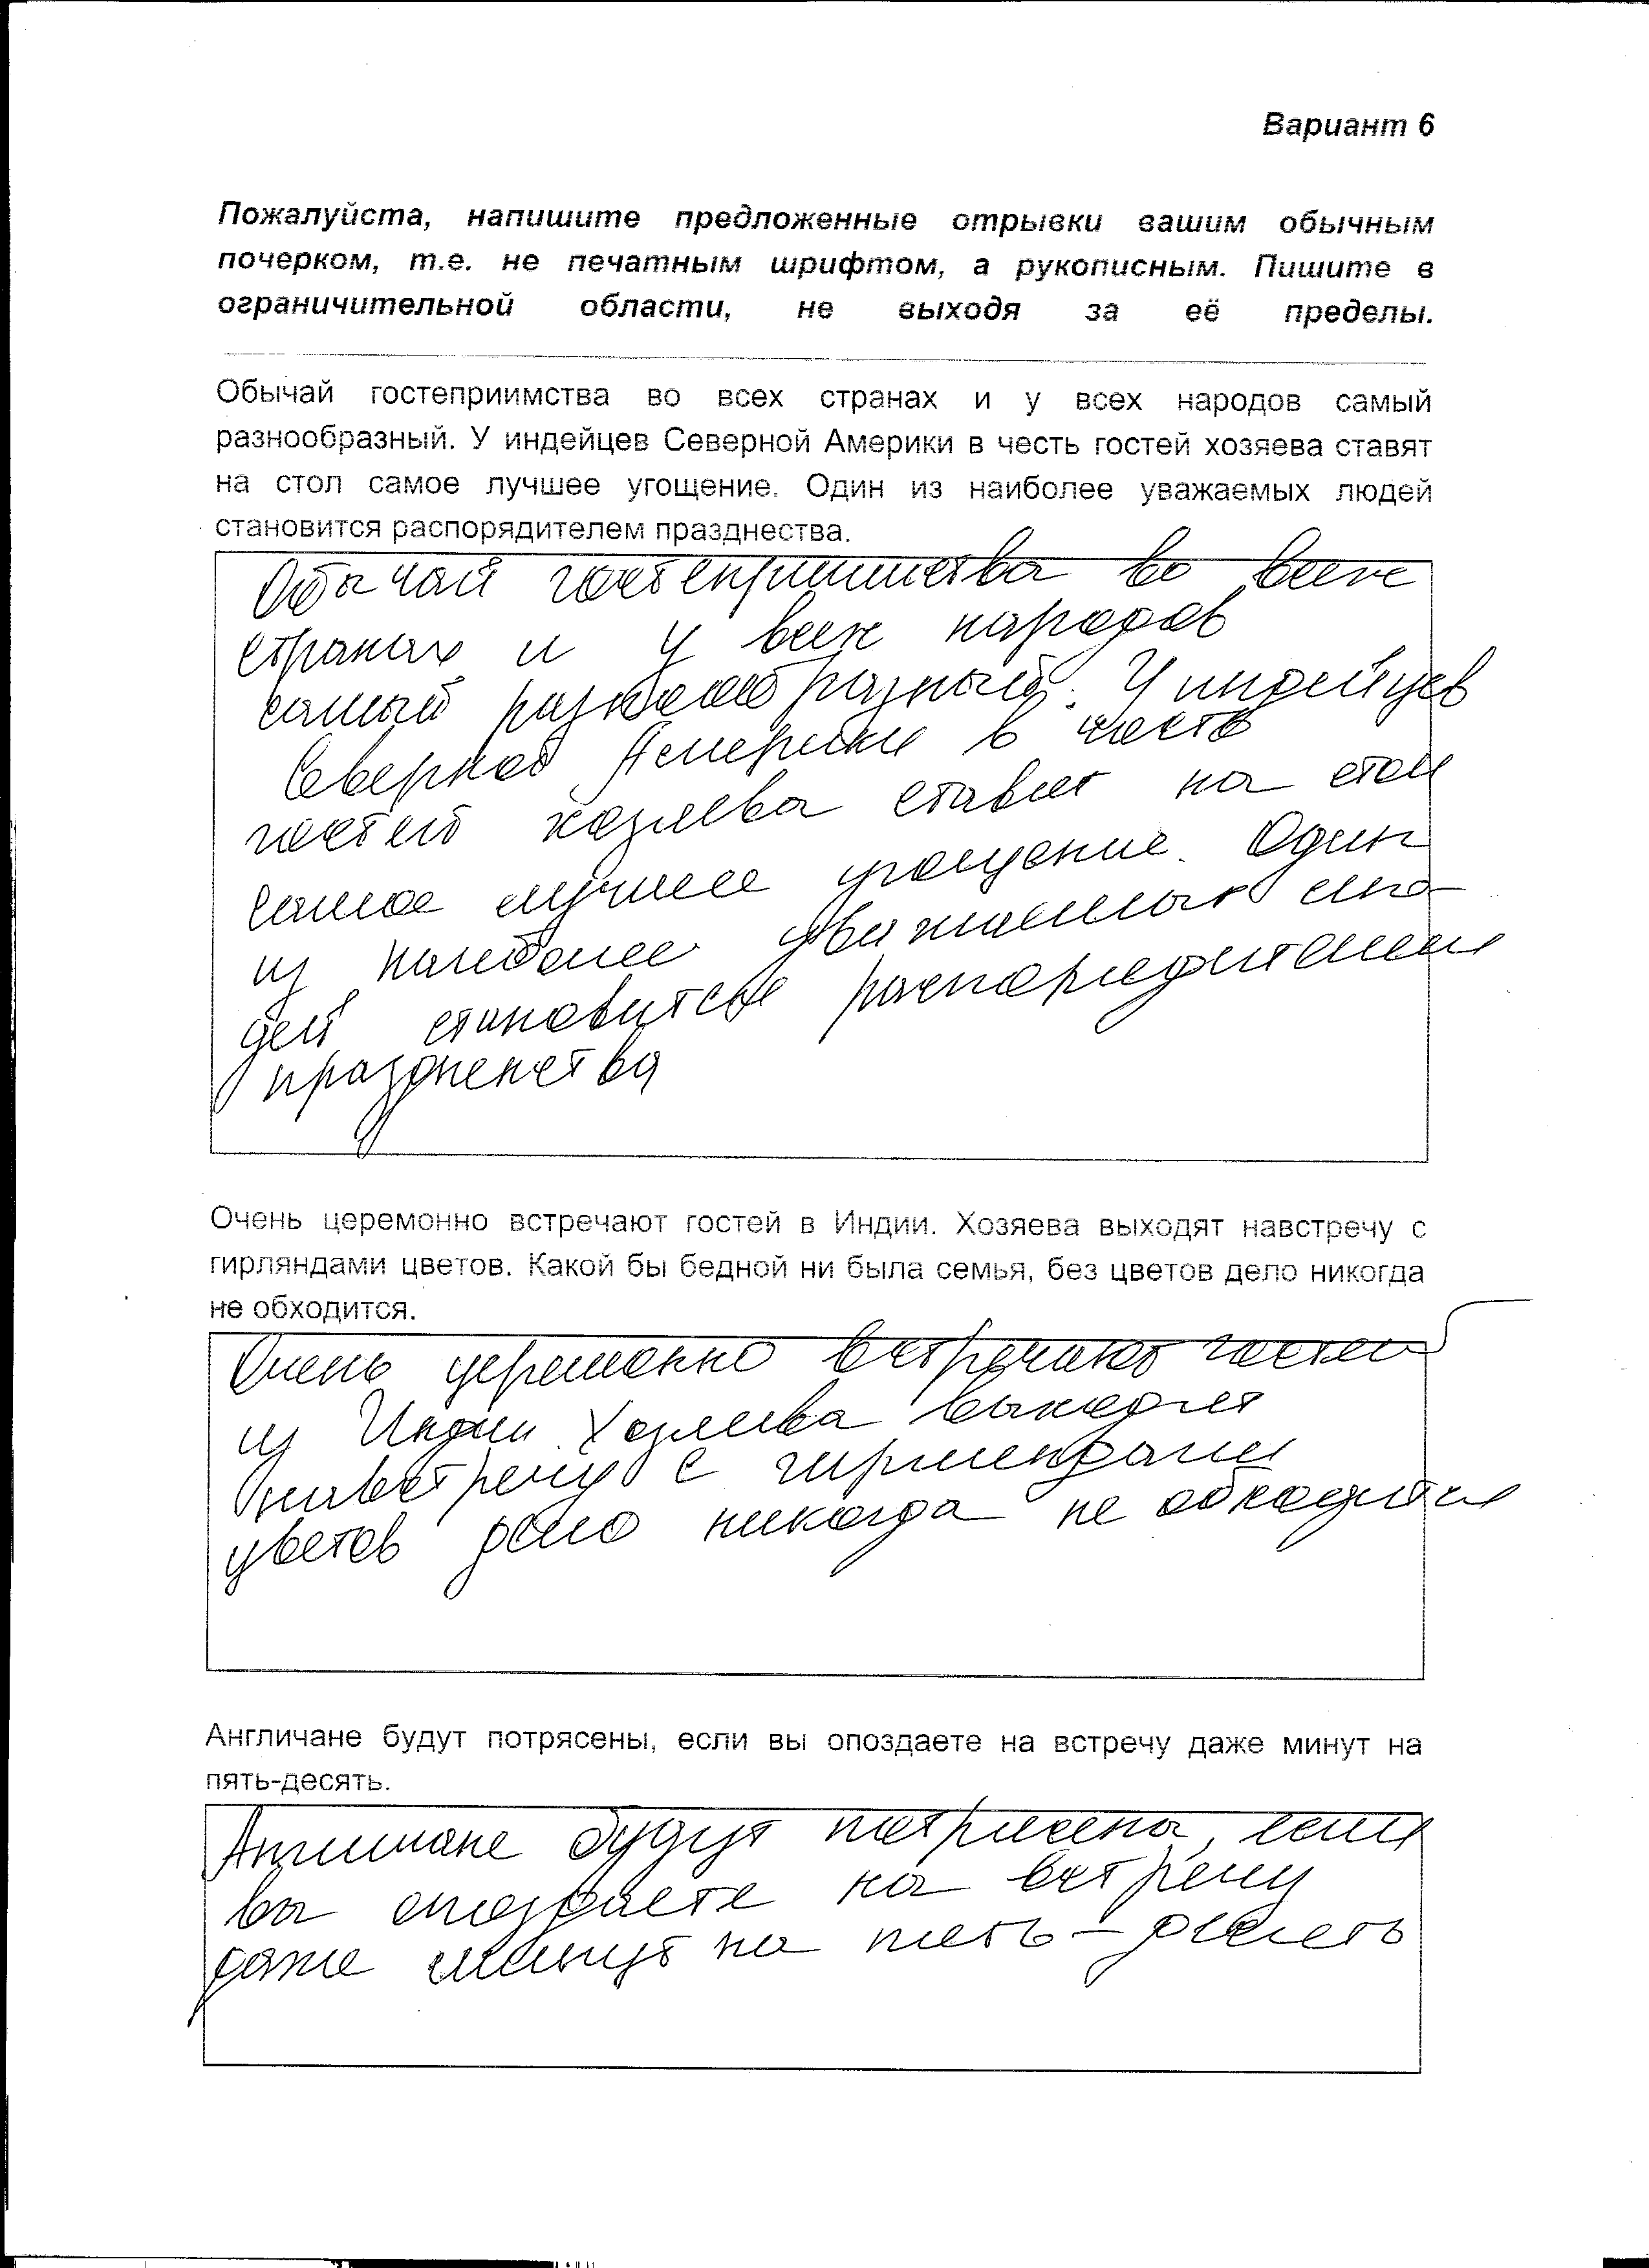 Вариант 6
Пожалуйста, напишите предложенные отрывки вашим обычным
почерком, т.е. не печатным шрифтом, а рукописным. Пишите в
ограничительной области, не выходя за её пределы.
Обычай гостеприимства во всех странах и у всех народов самый
разнообразный. У индейцев Северной Америки в честь гостей хозяева ставят
на стол самое лучшее угощение. Один из наиболее уважаемых людей
становится распорядителем празднества.
Обычай гостеприимства во всех
странах и у всех народов
самый разнообразный. У индейцев
Северной Америки в честь
гостей хозяева ставят на стол
самое лучшее угощение. Один
из наиболее уважаемых лю-
дей становится распорядителем
празненства
Очень церемонно встречают гостей в Индии. Хозяева выходят навстречу с
гирляндами цветов. Какой бы бедной ни была семья, без цветов дело никогда
не обходится.
Очень церемонно встречают гостей
из Индии. Хозяева выходят
навстречу с гирляндами
цветов дело никогда не обходится
Англичане будут потрясены, если вы опоздаете на встречу даже минут на
пять-десять.
Англичане будут потрясены, если
вы опоздаете на встречу
даже минут на пять-десять